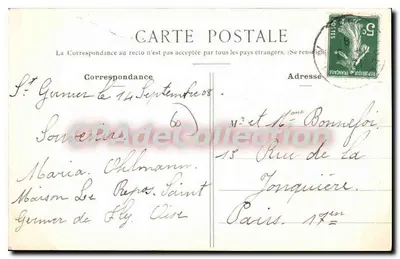 CARTE POSTALE
La Correspondance au recto n'est pas acceptée par tous les pays étrangers. (Se renseigner
Correspondance
Adresse
5c
POSTES
REPUBLIQUE FRANÇAISE
St Germer le 14 Septembre 08.
60
Souvenirs
Maria. Ohlmann.
Maison Le Repos. Saint
Germer de Fly. Oise
Mr et Mme Bonnefoi
13 Rue de la
Jonquière.
Paris. 17em
CPAdeCollection.com